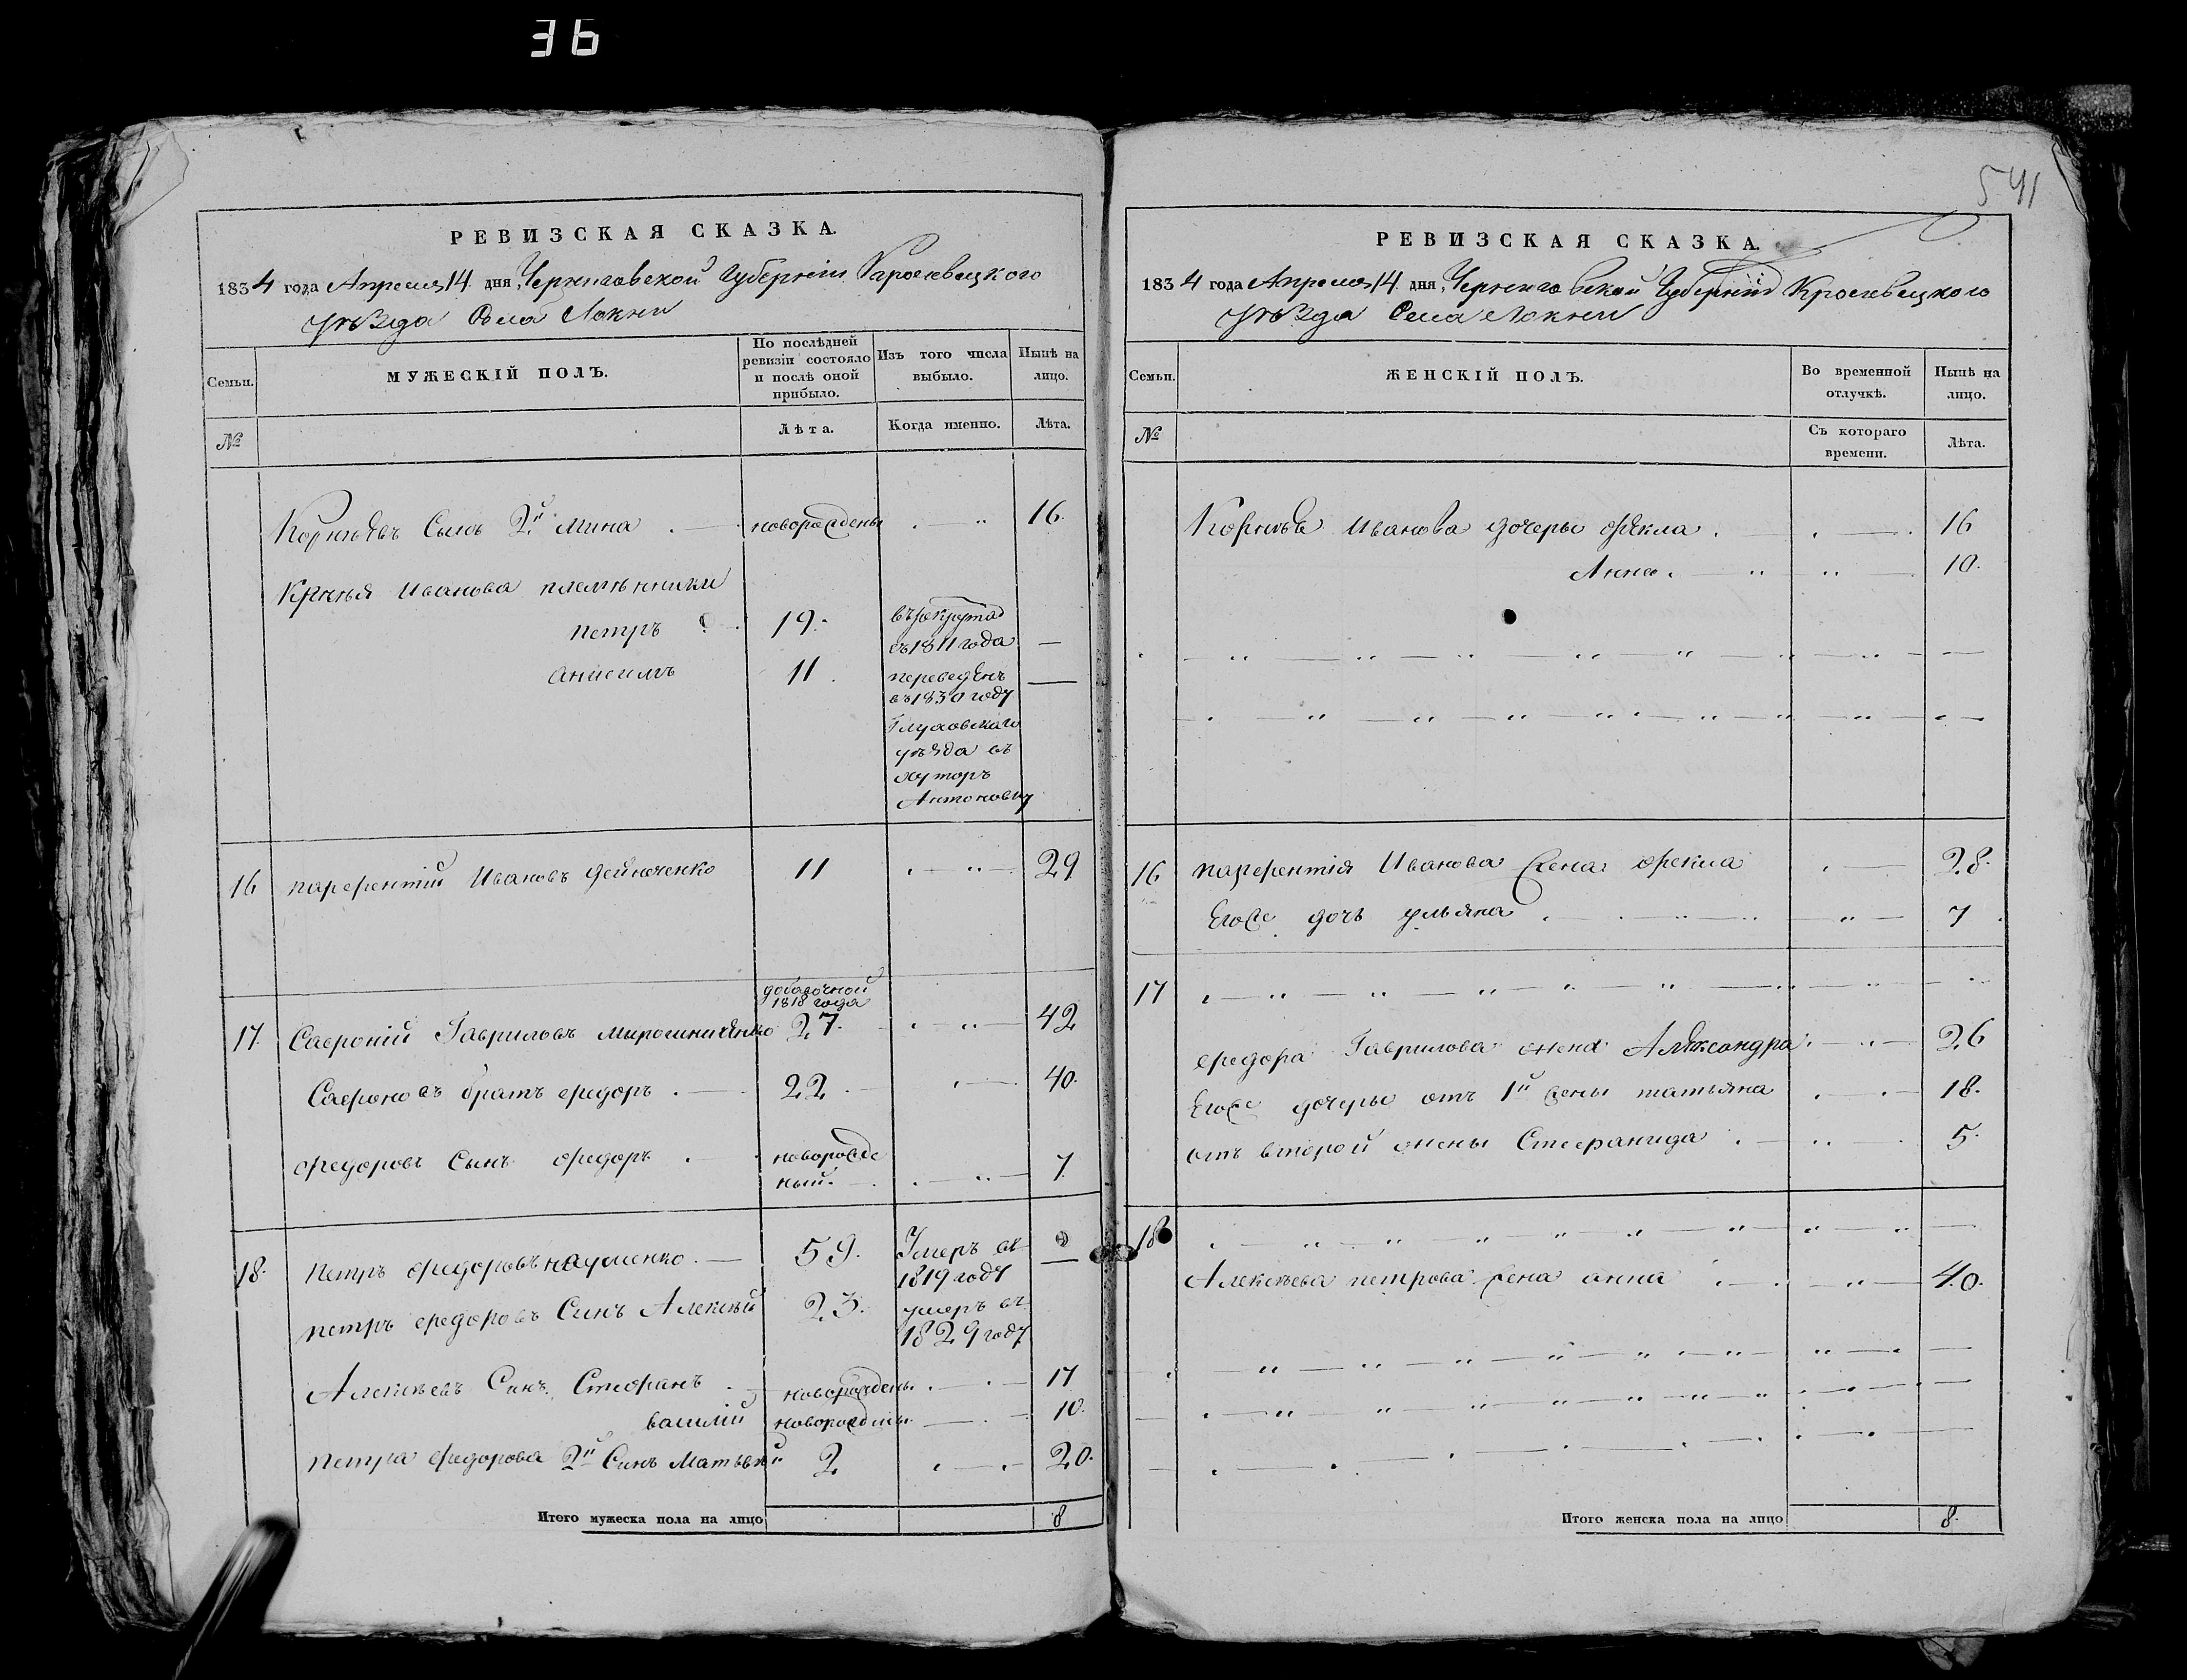 36
541
РЕВИЗСКАЯ СКАЗКА.
1834 года Апреля 14 дня, Черниговской Губерніи Кролевецкого
уѣзда Села Локни
Семьи. МУЖЕСКІЙ ПОЛЪ. По послѣдней ревизіи состояло и послѣ оной прибыло. Изъ того числа выбыло. Нынѣ на лицо.
№ Лѣта. Когда именно. Лѣта.
Корнѣевъ Сынъ 2й Мина новорожденъ 16.
Иванова племѣнники
петръ 19. въ рекрута
съ 1811 года —
анисимъ 11. переведенъ —
въ 1830 году
Глуховскаго
уѣзда въ
хуторъ
Антоновку
16 парфентій Ивановъ Дейнеченко 11 29
добавочной
1818 года
17. Сафроній Гавриловъ мирошниченко 27. 42
Сафроновъ братъ федоръ 22 40.
федоровъ Сынъ федоръ новорожде
ный. 7
18. петръ федоровъ науменко. 59. Умеръ въ —
1819 году
петръ федоровъ Синъ Алексѣй 23. умеръ въ
1829 году
Алексѣевъ Синъ Стефанъ новорожденъ. 17
василій новорожденъ. 10.
петра федорова 2й Синъ Матвѣй 2 20.
Итого мужеска пола на лицо 8
РЕВИЗСКАЯ СКАЗКА.
1834 года Апреля 14 дня, Черниговской Губерніи Кролевецкого
уѣзда Села Локни
Семьи. ЖЕНСКІЙ ПОЛЪ. Во временной отлучкѣ. Нынѣ на лицо.
№ Съ котораго времени. Лѣта.
Корнѣя Иванова дочеры фекла 16
Анна 10.
16 парфентія Иванова жена фекла 28.
Егоже дочъ ульяна 7
17
федора Гаврилова жена Александра 26
Егоже дочеры отъ 1й жены татьяна 18.
отъ второй жены Стефанида 5.
18
Алексѣева петрова жена анна 40.
Итого женска пола на лицо 8.